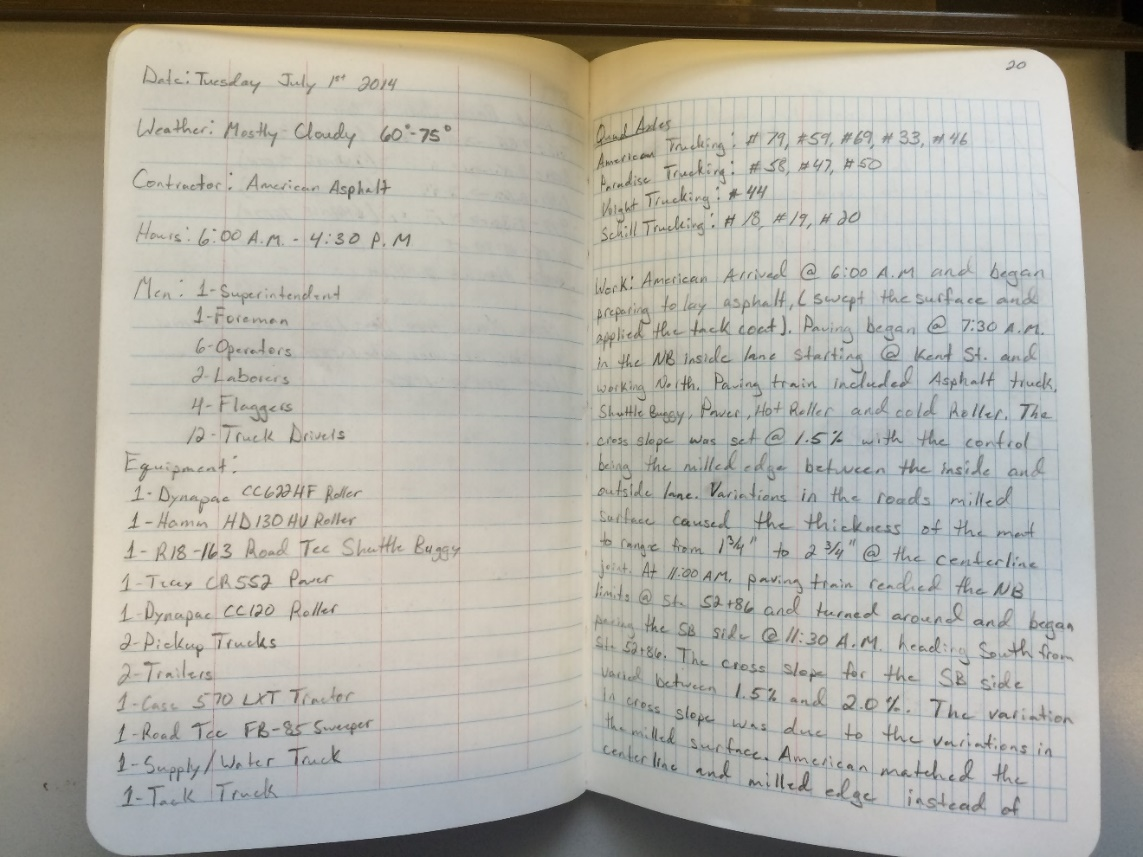 Date: Tuesday July 1st 2014
Weather: Mostly Cloudy 60°-75°
Contractor: American Asphalt
Hours: 6:00 A.M. - 4:30 P.M
Men: 1-Superintendent
1-Foreman
6-Operators
2-Laborers
4-Flaggers
12-Truck Drivers
Equipment:
1-Dynapac CC622HF Roller
1-Hamm HD130HV Roller
1-R18-163 Road Tec Shuttle Buggy
1-Terex CR552 Paver
1-Dynapac CC120 Roller
2-Pickup Trucks
2-Trailers
1-Case 570 LXT Tractor
1-Road Tec FB-85 Sweeper
1-Supply/Water Truck
1-Tack Truck
20
Quad Axles
American Trucking: #79, #59, #69, #33, #46
Paradise Trucking: #58, #47, #50
Voight Trucking: #44
Schill Trucking: #18, #19, #20
Work: American Arrived @ 6:00 A.M and began
preparing to lay asphalt, (swept the surface and
applied the tack coat). Paving began @ 7:30 A.M.
in the NB inside lane starting @ Kent St. and
working North. Paving train included Asphalt truck,
Shuttle Buggy, Paver, Hot Roller and cold Roller. The
cross slope was set @ 1.5% with the control
being the milled edge between the inside and
outside lane. Variations in the roads milled
surface caused the thickness of the mat
to range from 1 3/4" to 2 3/4" @ the centerline
joint. At 11:00 AM, paving train reached the NB
limits @ St. 52+86 and turned around and began
paving the SB side @ 11:30 A.M. heading South from
St. 52+86. The cross slope for the SB side
varied between 1.5% and 2.0%. The variation
in cross slope was due to the variations in
the milled surface. American matched the
centerline and milled edge instead of